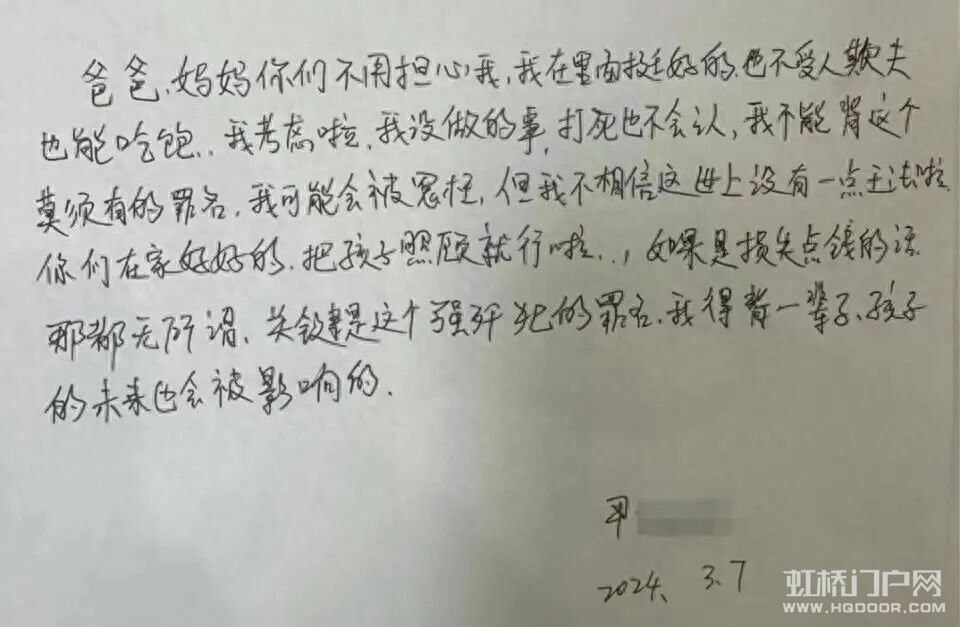 爸爸、妈妈你们不用担心我,我在里面挺好的.也不受人欺夫
也能吃饱..我考虑啦.我没做的事,打死也不会认,我不能背这个
莫须有的罪名.我可能会被冤枉,但我不相信这世上没有一点王法啦.
你们在家好好的.把孩子照顾就行啦..,如果是损失点钱的话
那都无所谓.关键是这个强奸犯的罪名.我得背一辈子、孩子
的未来也会被影响的.
甲
2024、3.7
虹桥门户网
WWW.HQDOOR.COM